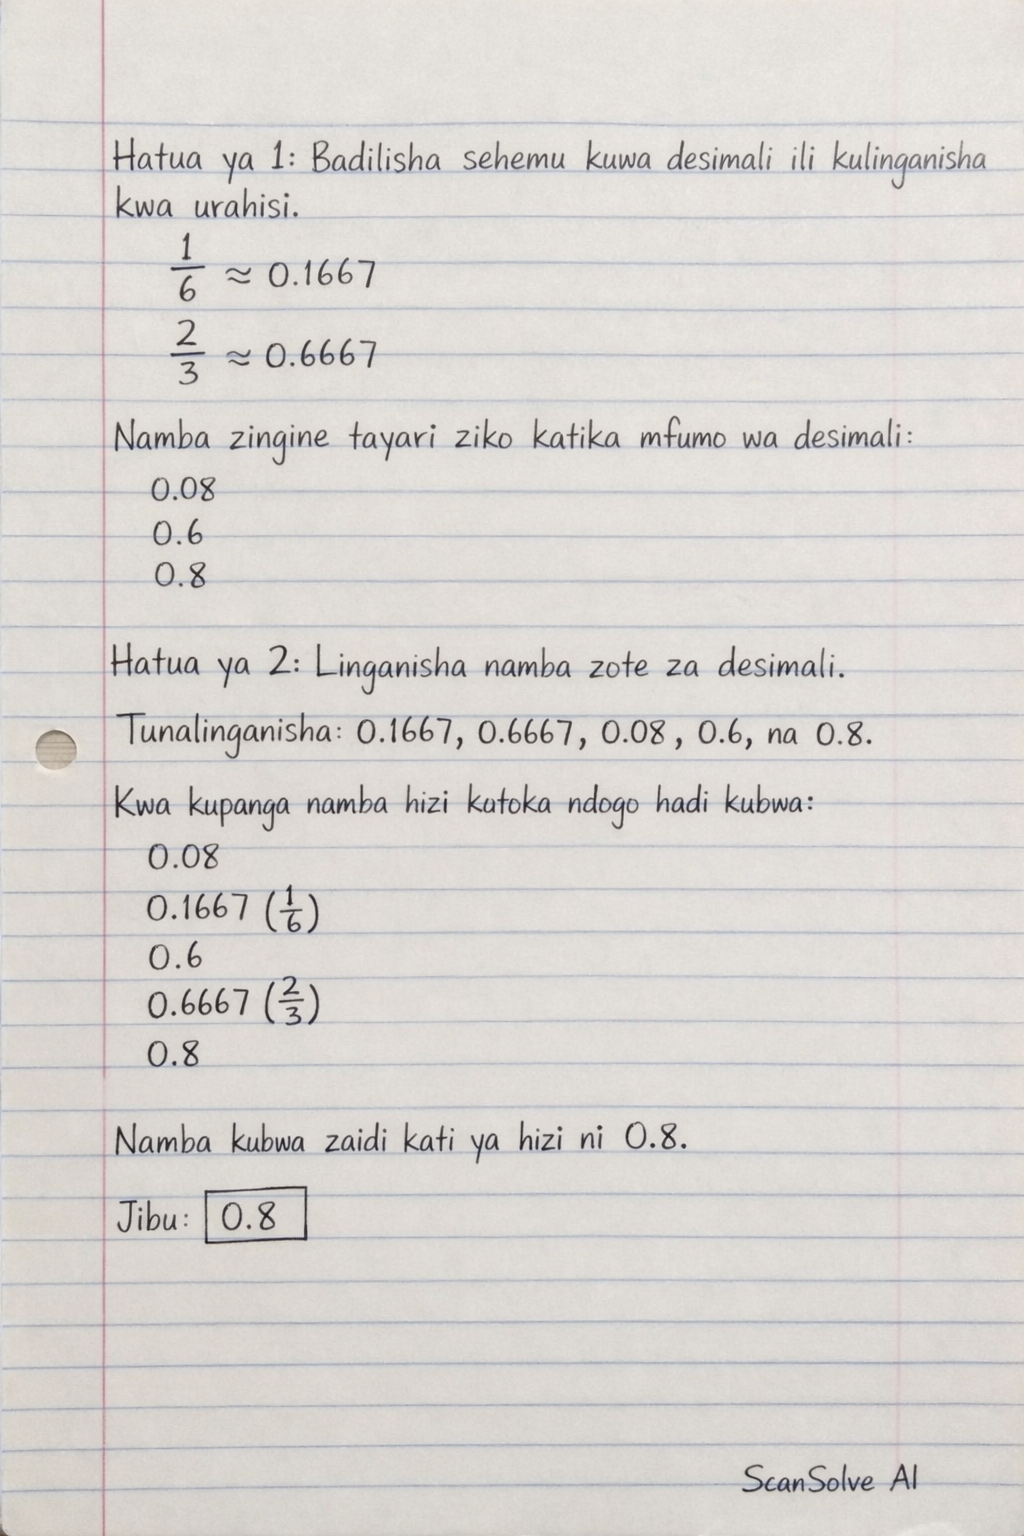 Hatua ya 1: Badilisha sehemu kuwa desimali ili kulinganisha
kwa urahisi.
1/6 ≈ 0.1667
2/3 ≈ 0.6667
Namba zingine tayari ziko katika mfumo wa desimali:
0.08
0.6
0.8
Hatua ya 2: Linganisha namba zote za desimali.
Tunalinganisha: 0.1667, 0.6667, 0.08, 0.6, na 0.8.
Kwa kupanga namba hizi katoka ndogo hadi kubwa:
0.08
0.1667 (1/6)
0.6
0.6667 (2/3)
0.8
Namba kubwa zaidi kati ya hizi ni 0.8.
Jibu: 0.8
ScanSolve AI